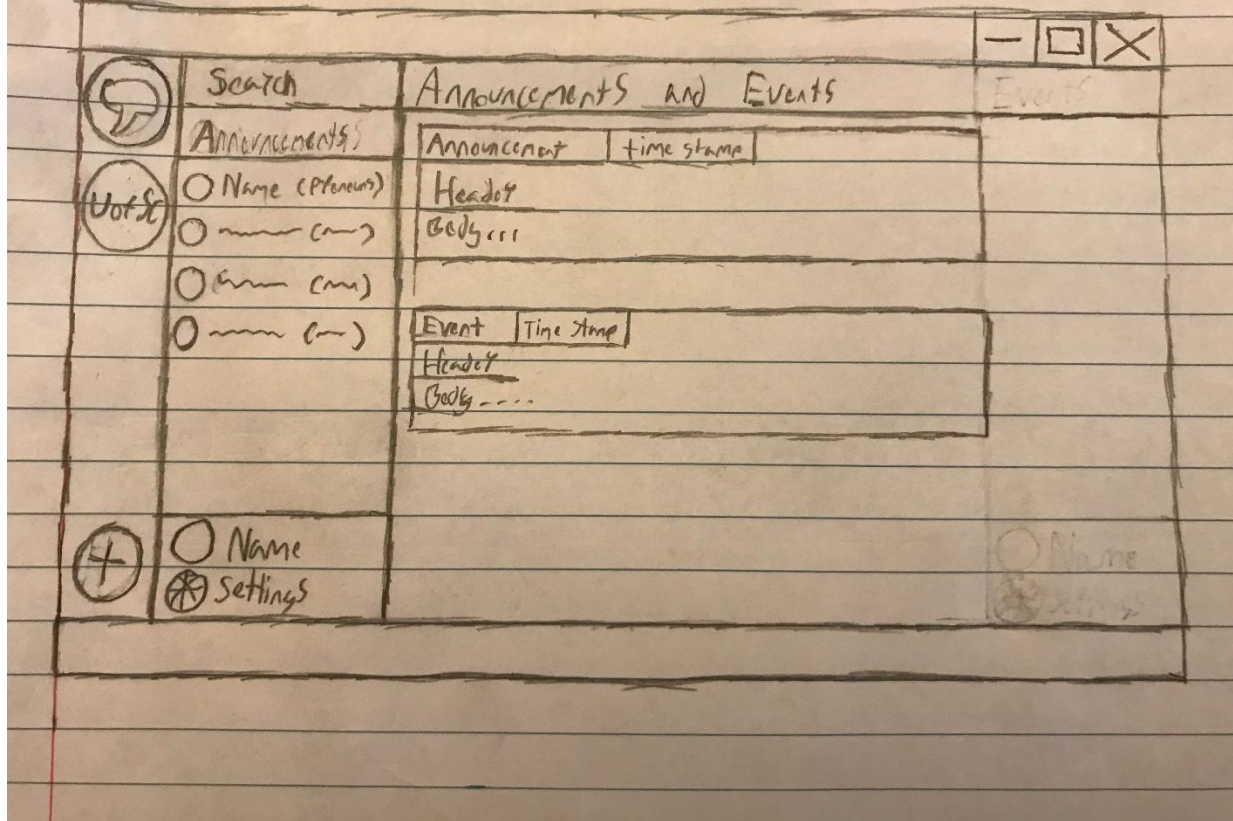 Search
Announcements
Name (Pronouns)
UofSC
Name
Settings
Announcements and Events
Announcement time stamp
Header
Body...
Event Time Stamp
Header
Body.....
Events
Name
Settings